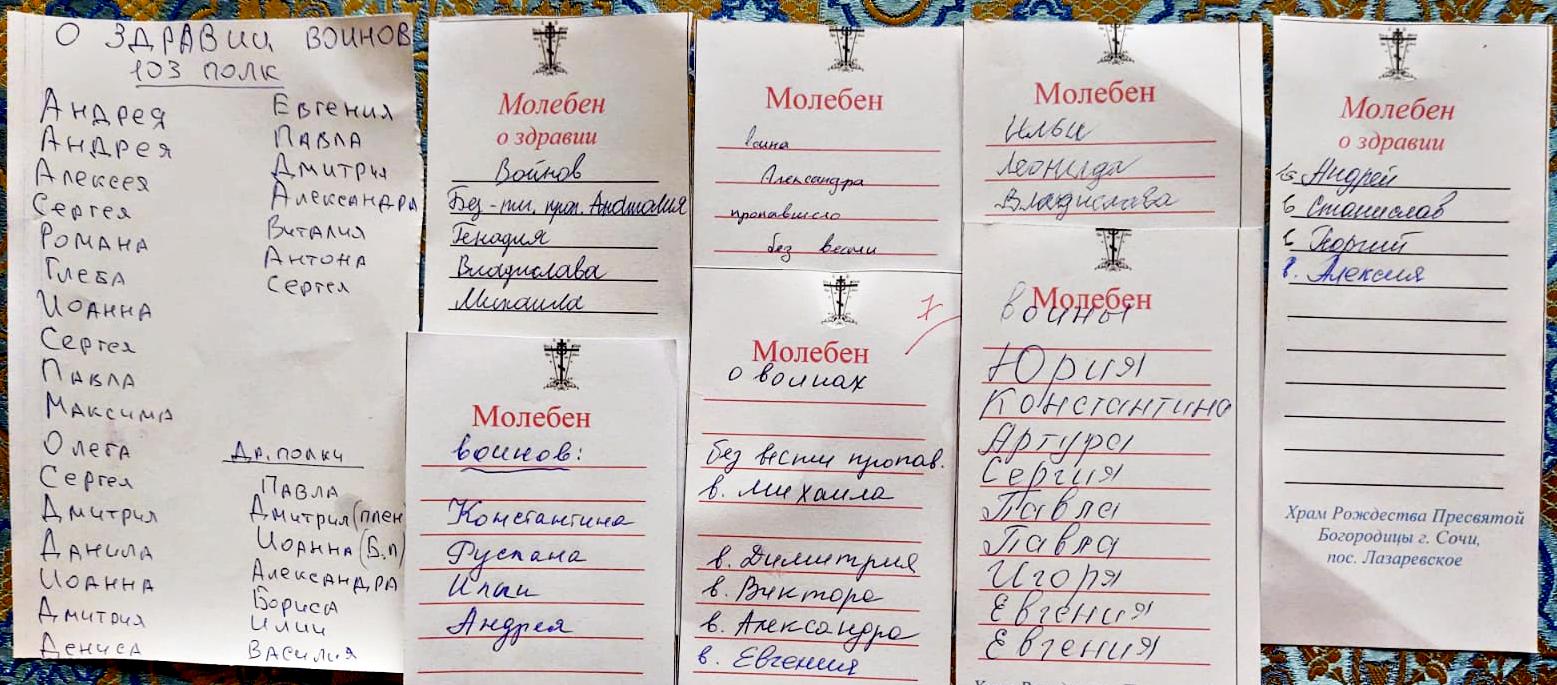 О ЗДРАВИИ ВОИНОВ
103 ПОЛК
АНДРЕЯ
АНДРЕЯ
АЛЕКСЕЯ
СЕРГЕЯ
РОМАНА
ГЛЕБА
ИОАННА
СЕРГЕЯ
ПАВЛА
МАКСИМА
ОЛЕГА
СЕРГЕЯ
ДМИТРИЯ
ДАНИЛА
ИОАННА
ДМИТРИЯ
ДЕНИСА
ЕВГЕНИЯ
ПАВЛА
ДМИТРИЯ
АЛЕКСАНДРА
ВИТАЛИЯ
АНТОНА
СЕРГЕЯ
ДР. ПОЛКИ
ПАВЛА
ДМИТРИЯ (ПЛЕН
ИОАННА (Б.П)
АЛЕКСАНДРА
БОРИСА
ИЛИИ
ВАСИЛИЯ
Молебен
о здравии
Войнов
Без-ти, проп. Анатолия
Генадия
Владислава
Михаила
Молебен
воинов:
Константина
Руслана
Ильи
Андрея
Молебен
воина
Александра
пропавшего
без вести
Молебен
о воинах
без вести пропав.
в. Михаила
в. Димитрия
в. Виктора
в. Александра
в. Евгения
Молебен
Ильи
Леонида
Владислава
Молебен
воины
Юрия
Константина
Артура
Сергия
Павла
Павла
Игоря
Евгения
Евгения
Молебен
о здравии
Андрей
Станислав
Георгий
в. Алексия
Храм Рождества Пресвятой
Богородицы г. Сочи,
пос. Лазаревское